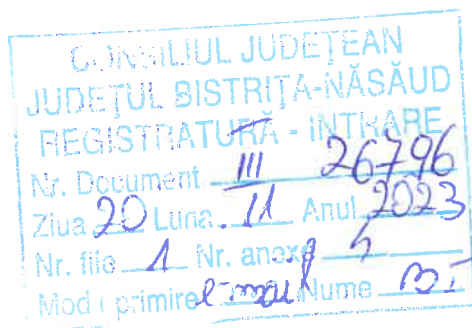 CONSILIUL JUDEȚEAN
JUDEȚUL BISTRIȚA-NĂSĂUD
REGISTRATURĂ - INTRARE
Nr. Document III 26796
Ziua 20 Luna 11 Anul 2023
Nr. file 1 Nr. anexe
Mod primire e-mail Nume